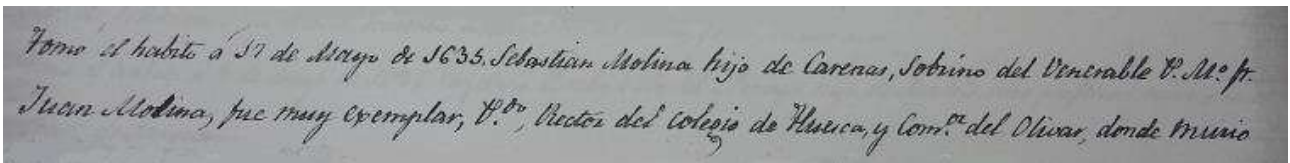 Tomó el habito á 17 de Mayo de 1635. Sebastian Molina hijo de Carenas, Sobrino del Venerable P. M.º fr.
Juan Molina, fue muy exemplar, P.do, Rector del Colegio de Huesca, y Com.or del Olivar, donde murio